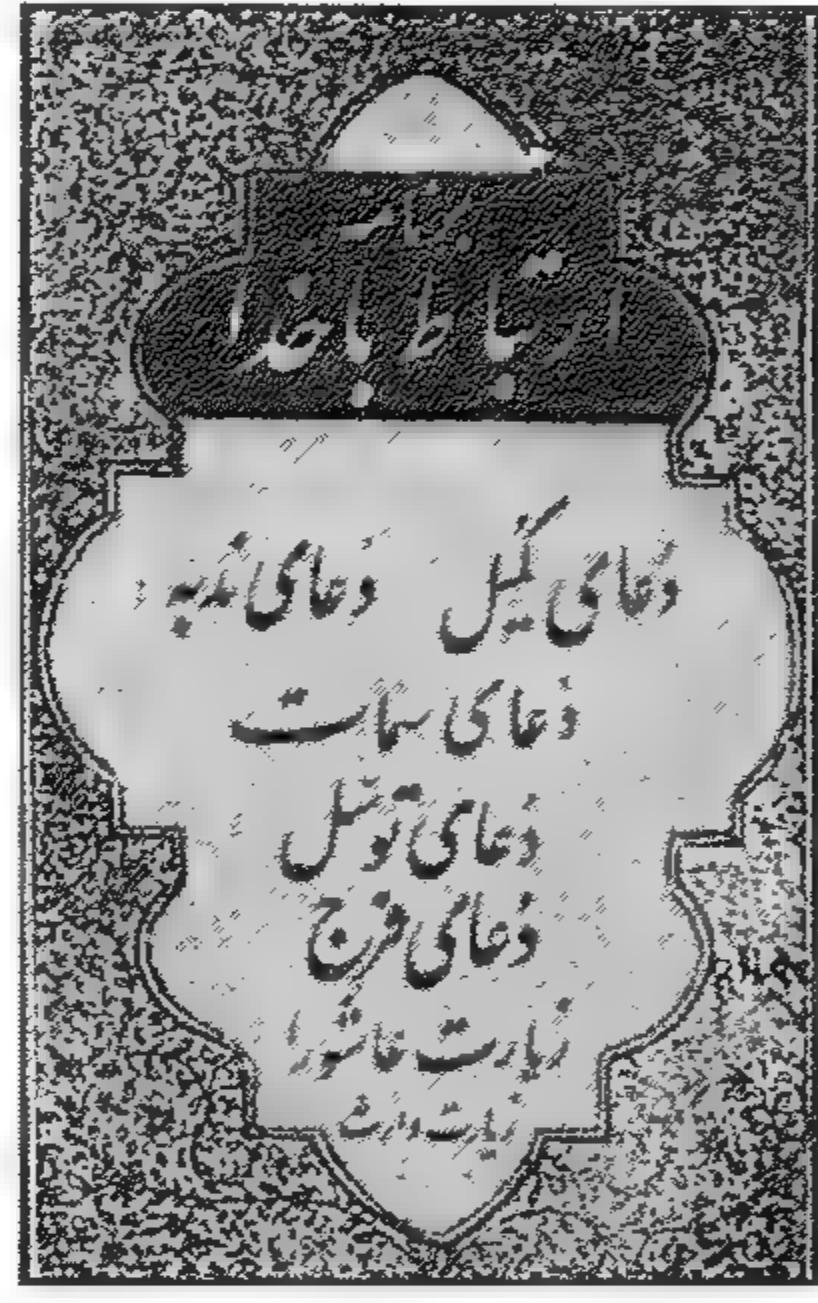 ارتباط با خدا
دعای کمیل دعای ندبه
دعای سمات
دعای توسل
دعای فرج
زیارت عاشورا
زیارت وارث